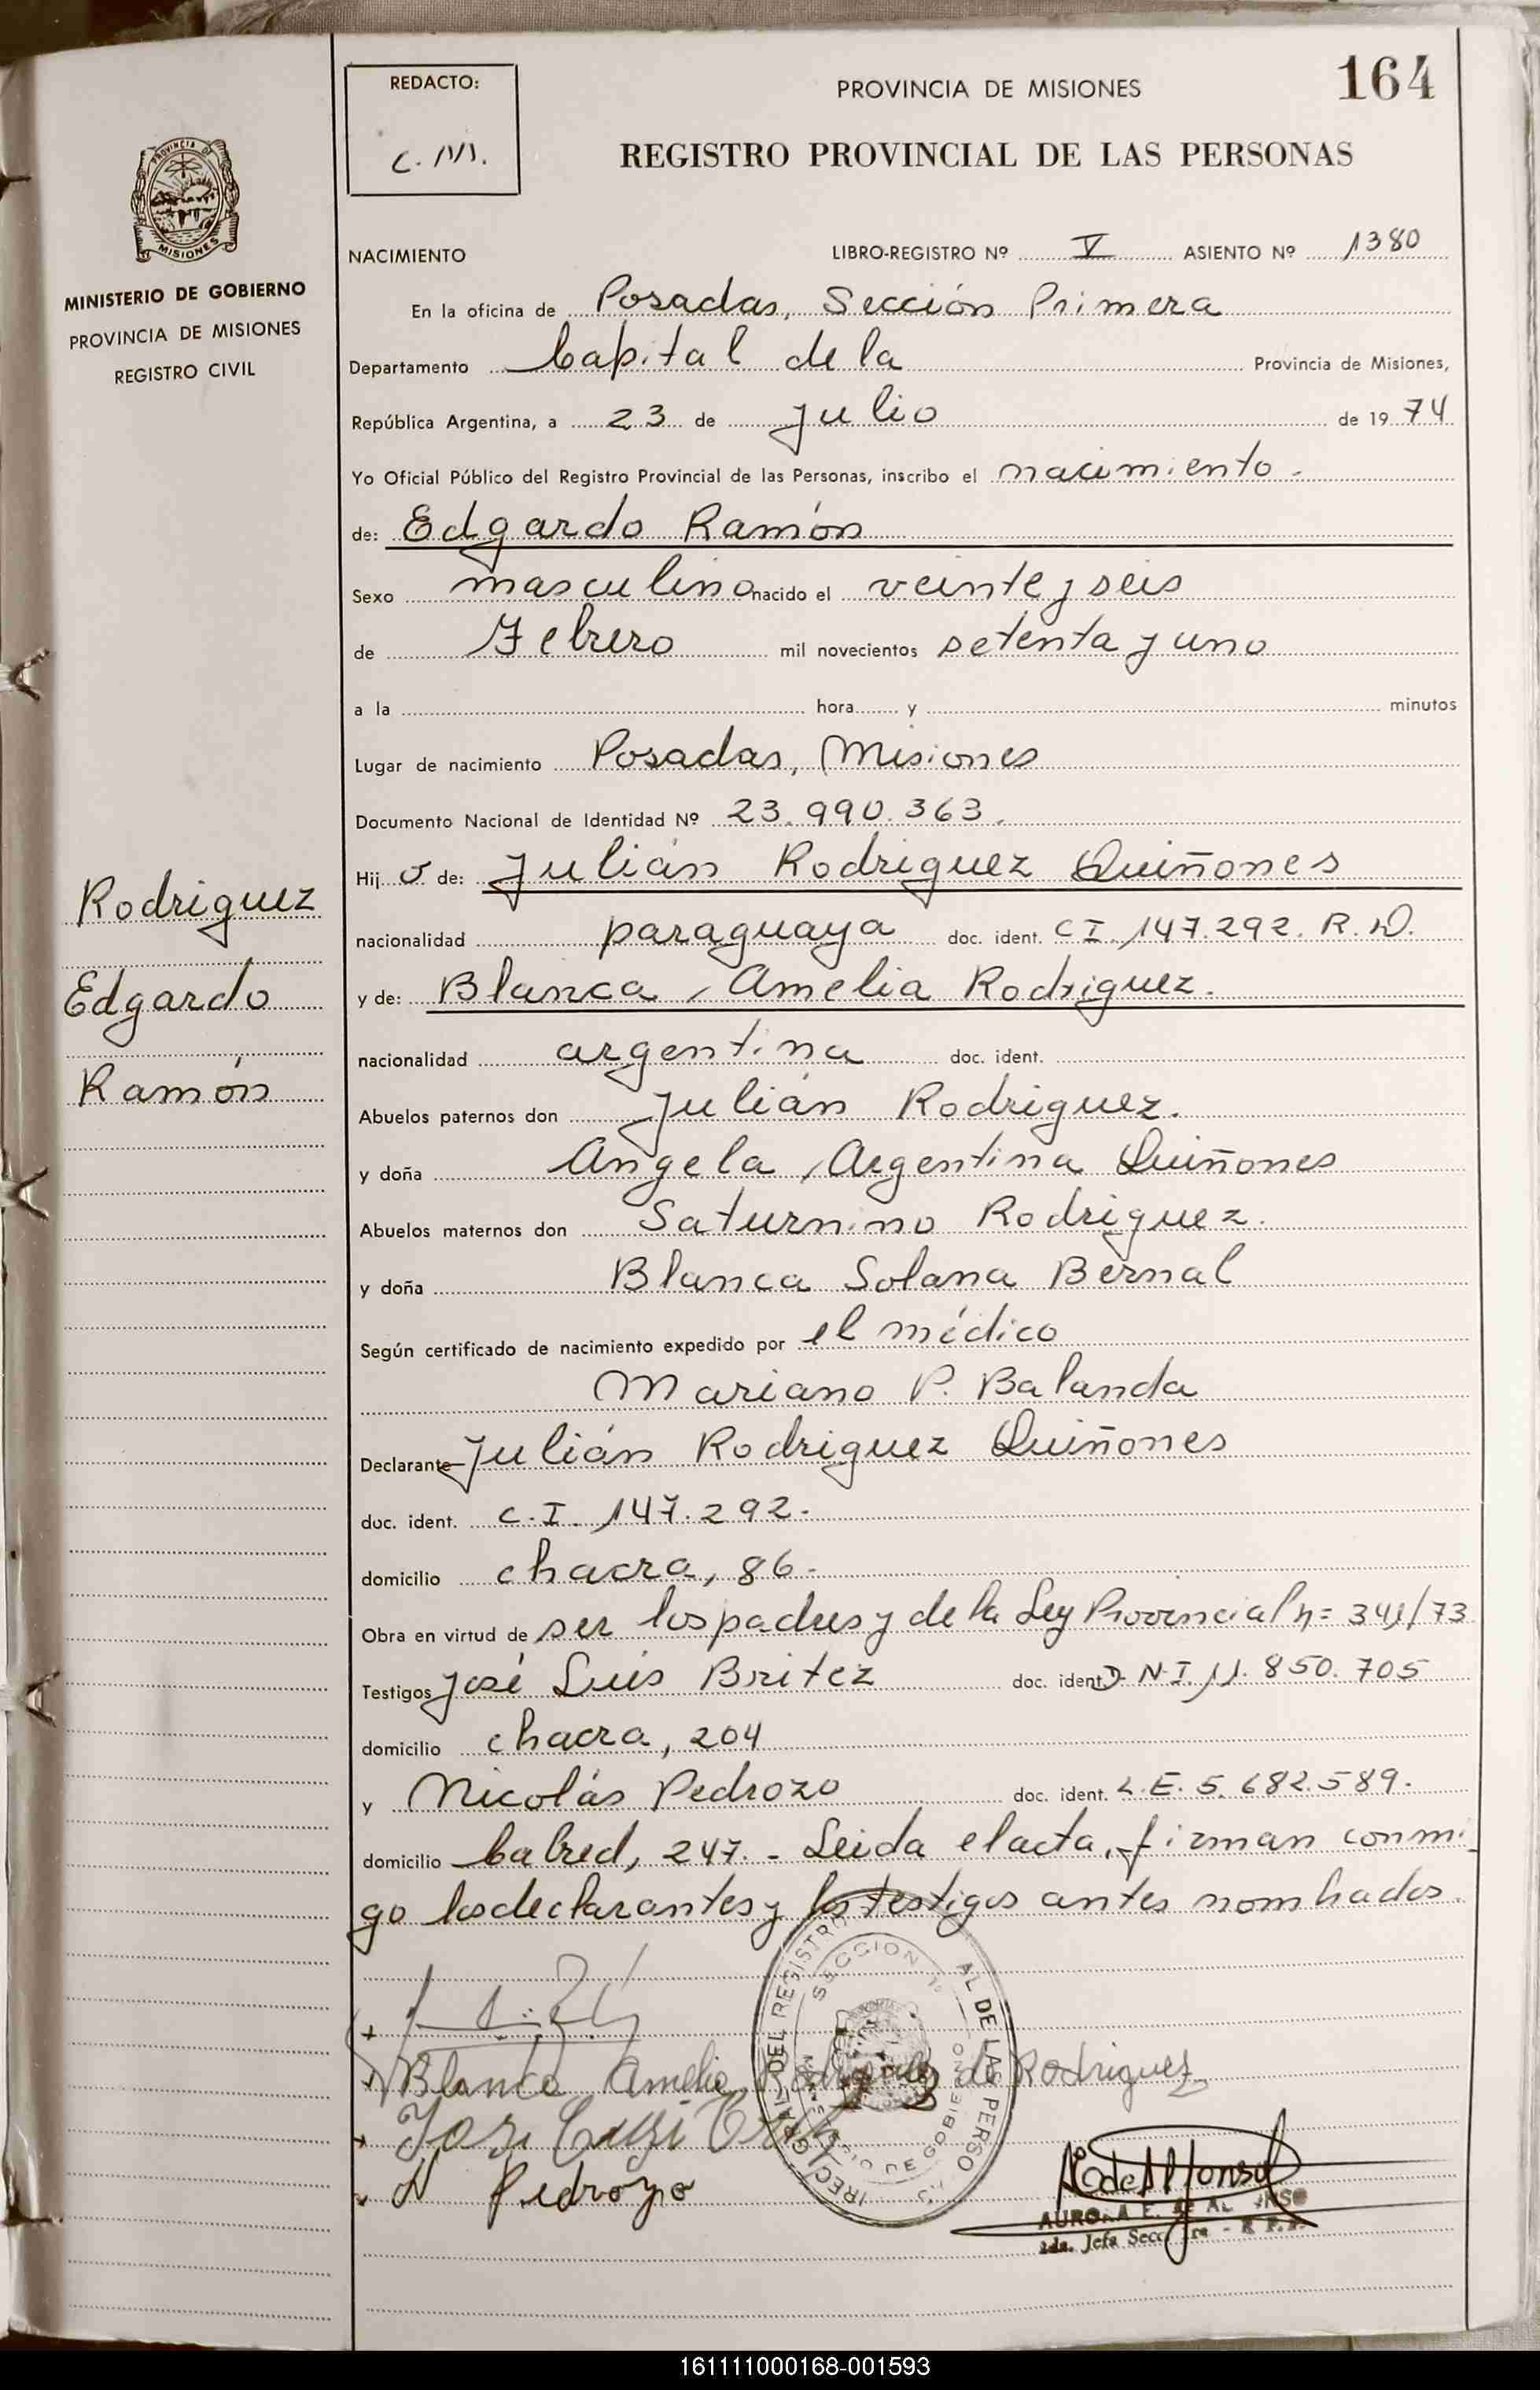 164
REDACTO:
C. M.
PROVINCIA DE MISIONES
REGISTRO PROVINCIAL DE LAS PERSONAS
PROVINCIA DE
MISIONES
MINISTERIO DE GOBIERNO
PROVINCIA DE MISIONES
REGISTRO CIVIL
NACIMIENTO LIBRO-REGISTRO Nº V ASIENTO Nº 1380
En la oficina de Posadas, Sección Primera
Departamento Capital de la Provincia de Misiones,
República Argentina, a 23 de Julio de 1974
Yo Oficial Público del Registro Provincial de las Personas, inscribo el nacimiento.
de: Edgardo Ramón
Sexo masculino nacido el veinte y seis
de Febrero mil novecientos setenta y uno
a la hora y minutos
Lugar de nacimiento Posadas, Misiones
Documento Nacional de Identidad Nº 23.990.363.
Hijo de: Julián Rodriguez Quiñones
nacionalidad paraguaya doc. ident. C I. 147.292. R. D.
y de: Blanca Amelia Rodriguez.
nacionalidad argentina doc. ident.
Abuelos paternos don Julián Rodriguez.
y doña Angela Argentina Quiñones
Abuelos maternos don Saturnino Rodriguez.
y doña Blanca Solana Bernal
Según certificado de nacimiento expedido por el médico
Mariano P. Balanda
Declarante Julián Rodriguez Quiñones
doc. ident. C. I. 147.292.
domicilio chacra, 86.
Obra en virtud de ser los padres y de la Ley Provincial n= 341/73
Testigos José Luis Britez doc. ident. D. N. I. 11.850.705
domicilio chacra, 204
y Nicolás Pedrozo doc. ident. L. E. 5.682.589.
domicilio Cabred, 247. - Leida el acta, firman conmi
go los declarantes y los testigos antes nombrados.
Rodriguez
Edgardo
Ramón
Blanca Amelia Rodriguez de Rodriguez
N Pedrozo
DEL REGISTRO AL DE LAS PERSO
SECCION 1º
DE GOBIE
AURORA E. DE ALONSO
2da. Jefa Secc. 1ra - R P.P.
161111000168-001593